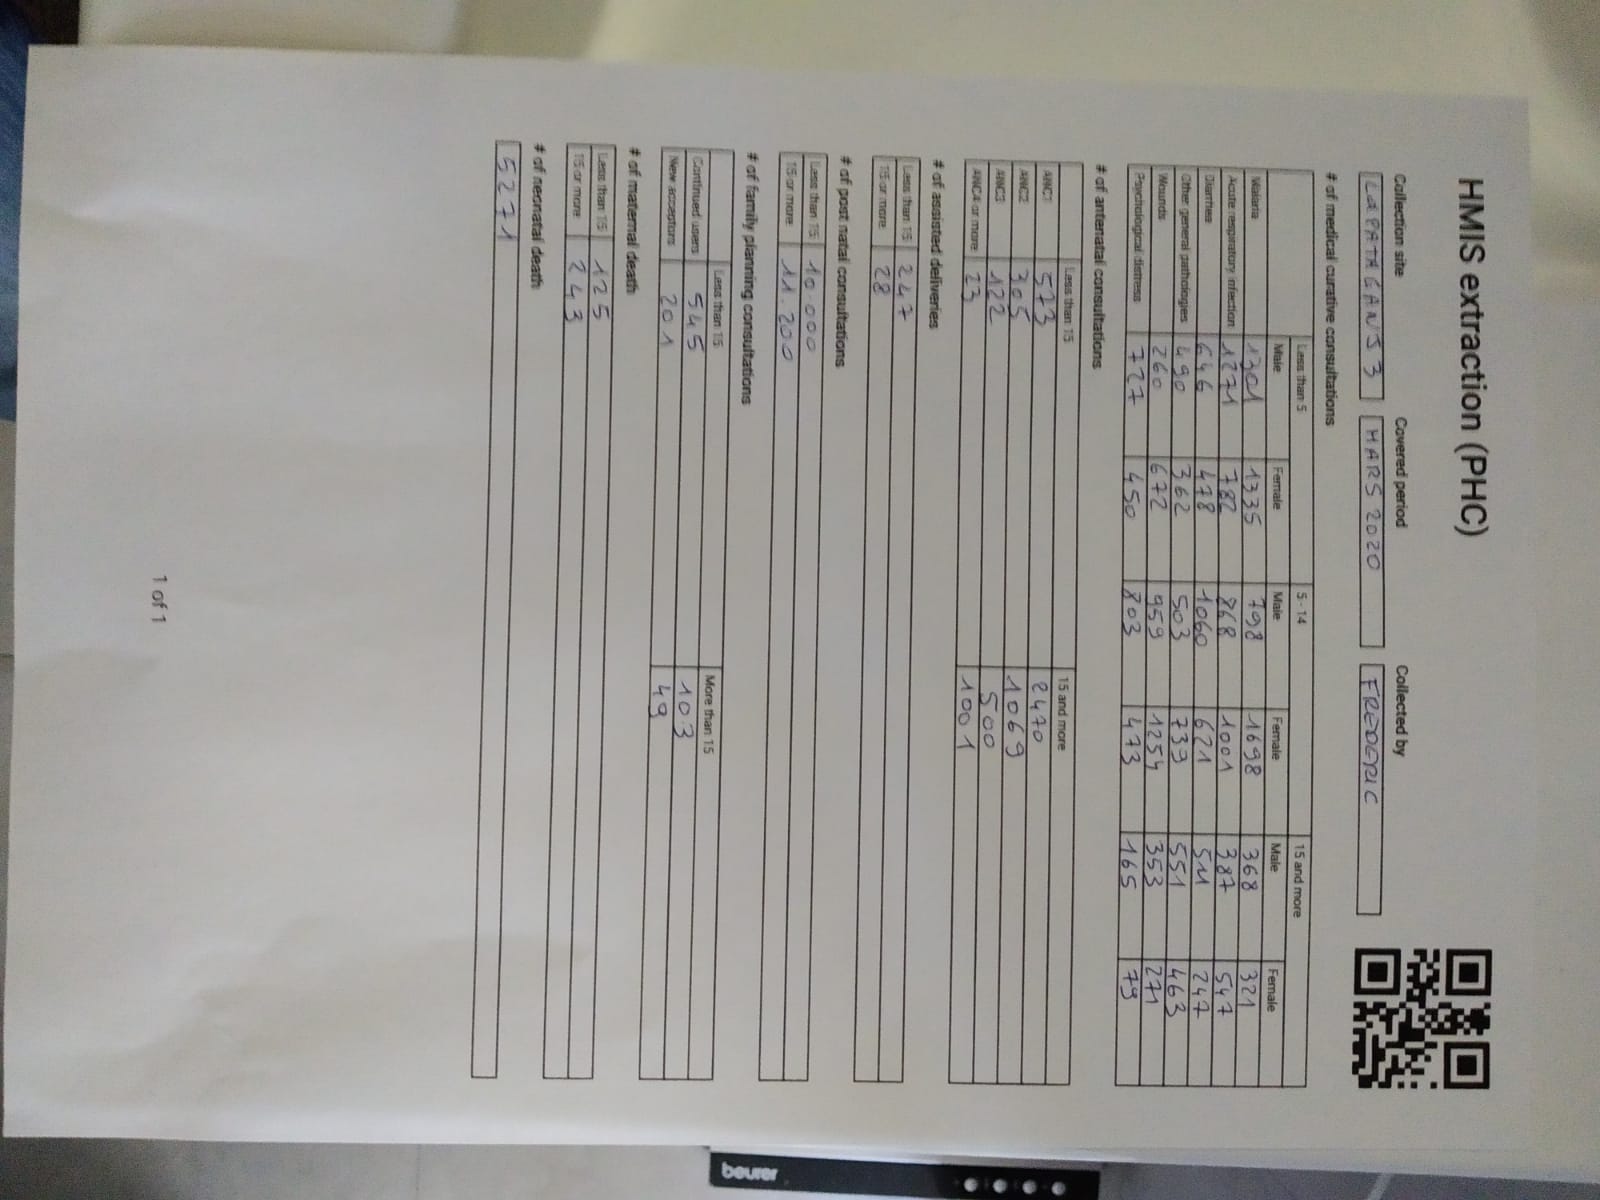 HMIS extraction (PHC)
Collection site Covered period Collected by
LALPATAGANJ 3 MARS 2020 FREDERIC
# of medical curative consultations
Less than 5 5 - 14 15 and more
Male Female Male Female Male Female
Malaria 1301 1335 798 1698 368 321
Acute respiratory infection 1271 782 868 1001 387 547
Diarrhea 646 478 1060 621 511 247
Other general pathologies 490 362 503 739 551 463
Wounds 260 672 959 1254 353 271
Psychological distress 727 450 803 473 165 79
# of antenatal consultations
Less than 15 15 and more
ANC1 573 2470
ANC2 305 1069
ANC3 122 500
ANC4 or more 23 1001
# of assisted deliveries
Less than 15 247
15 or more 28
# of post natal consultations
Less than 15 10.000
15 or more 11.200
# of family planning consultations
Less than 15 More than 15
Continued users 545 103
New acceptors 201 49
# of maternal death
Less than 15 125
15 or more 243
# of neonatal death
5271
1 of 1
beurer